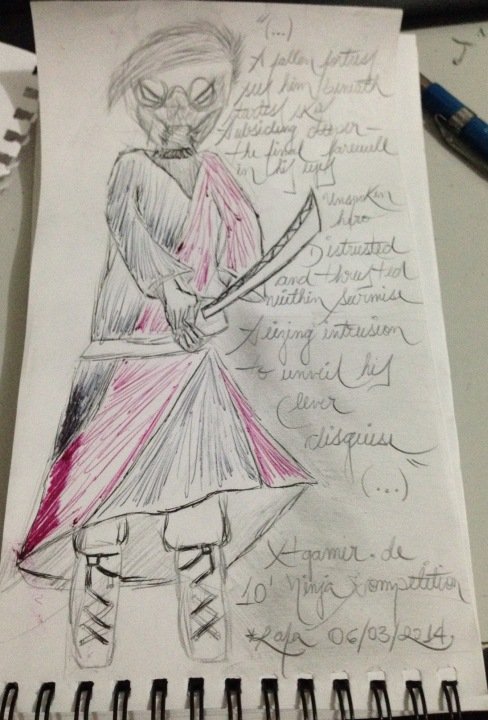 "(...)
A fallen fortress
sees him beneath
subsiding deeper -
the final farewell
in his eyes
Unspoken
hero
Distrusted
and thrusted
within surmise
Seizing intrusion
to unveil his
clever
disguise"
(...)
Xtgamer.de
10' Ninja Xompetition
*Rafa 06/03/2014